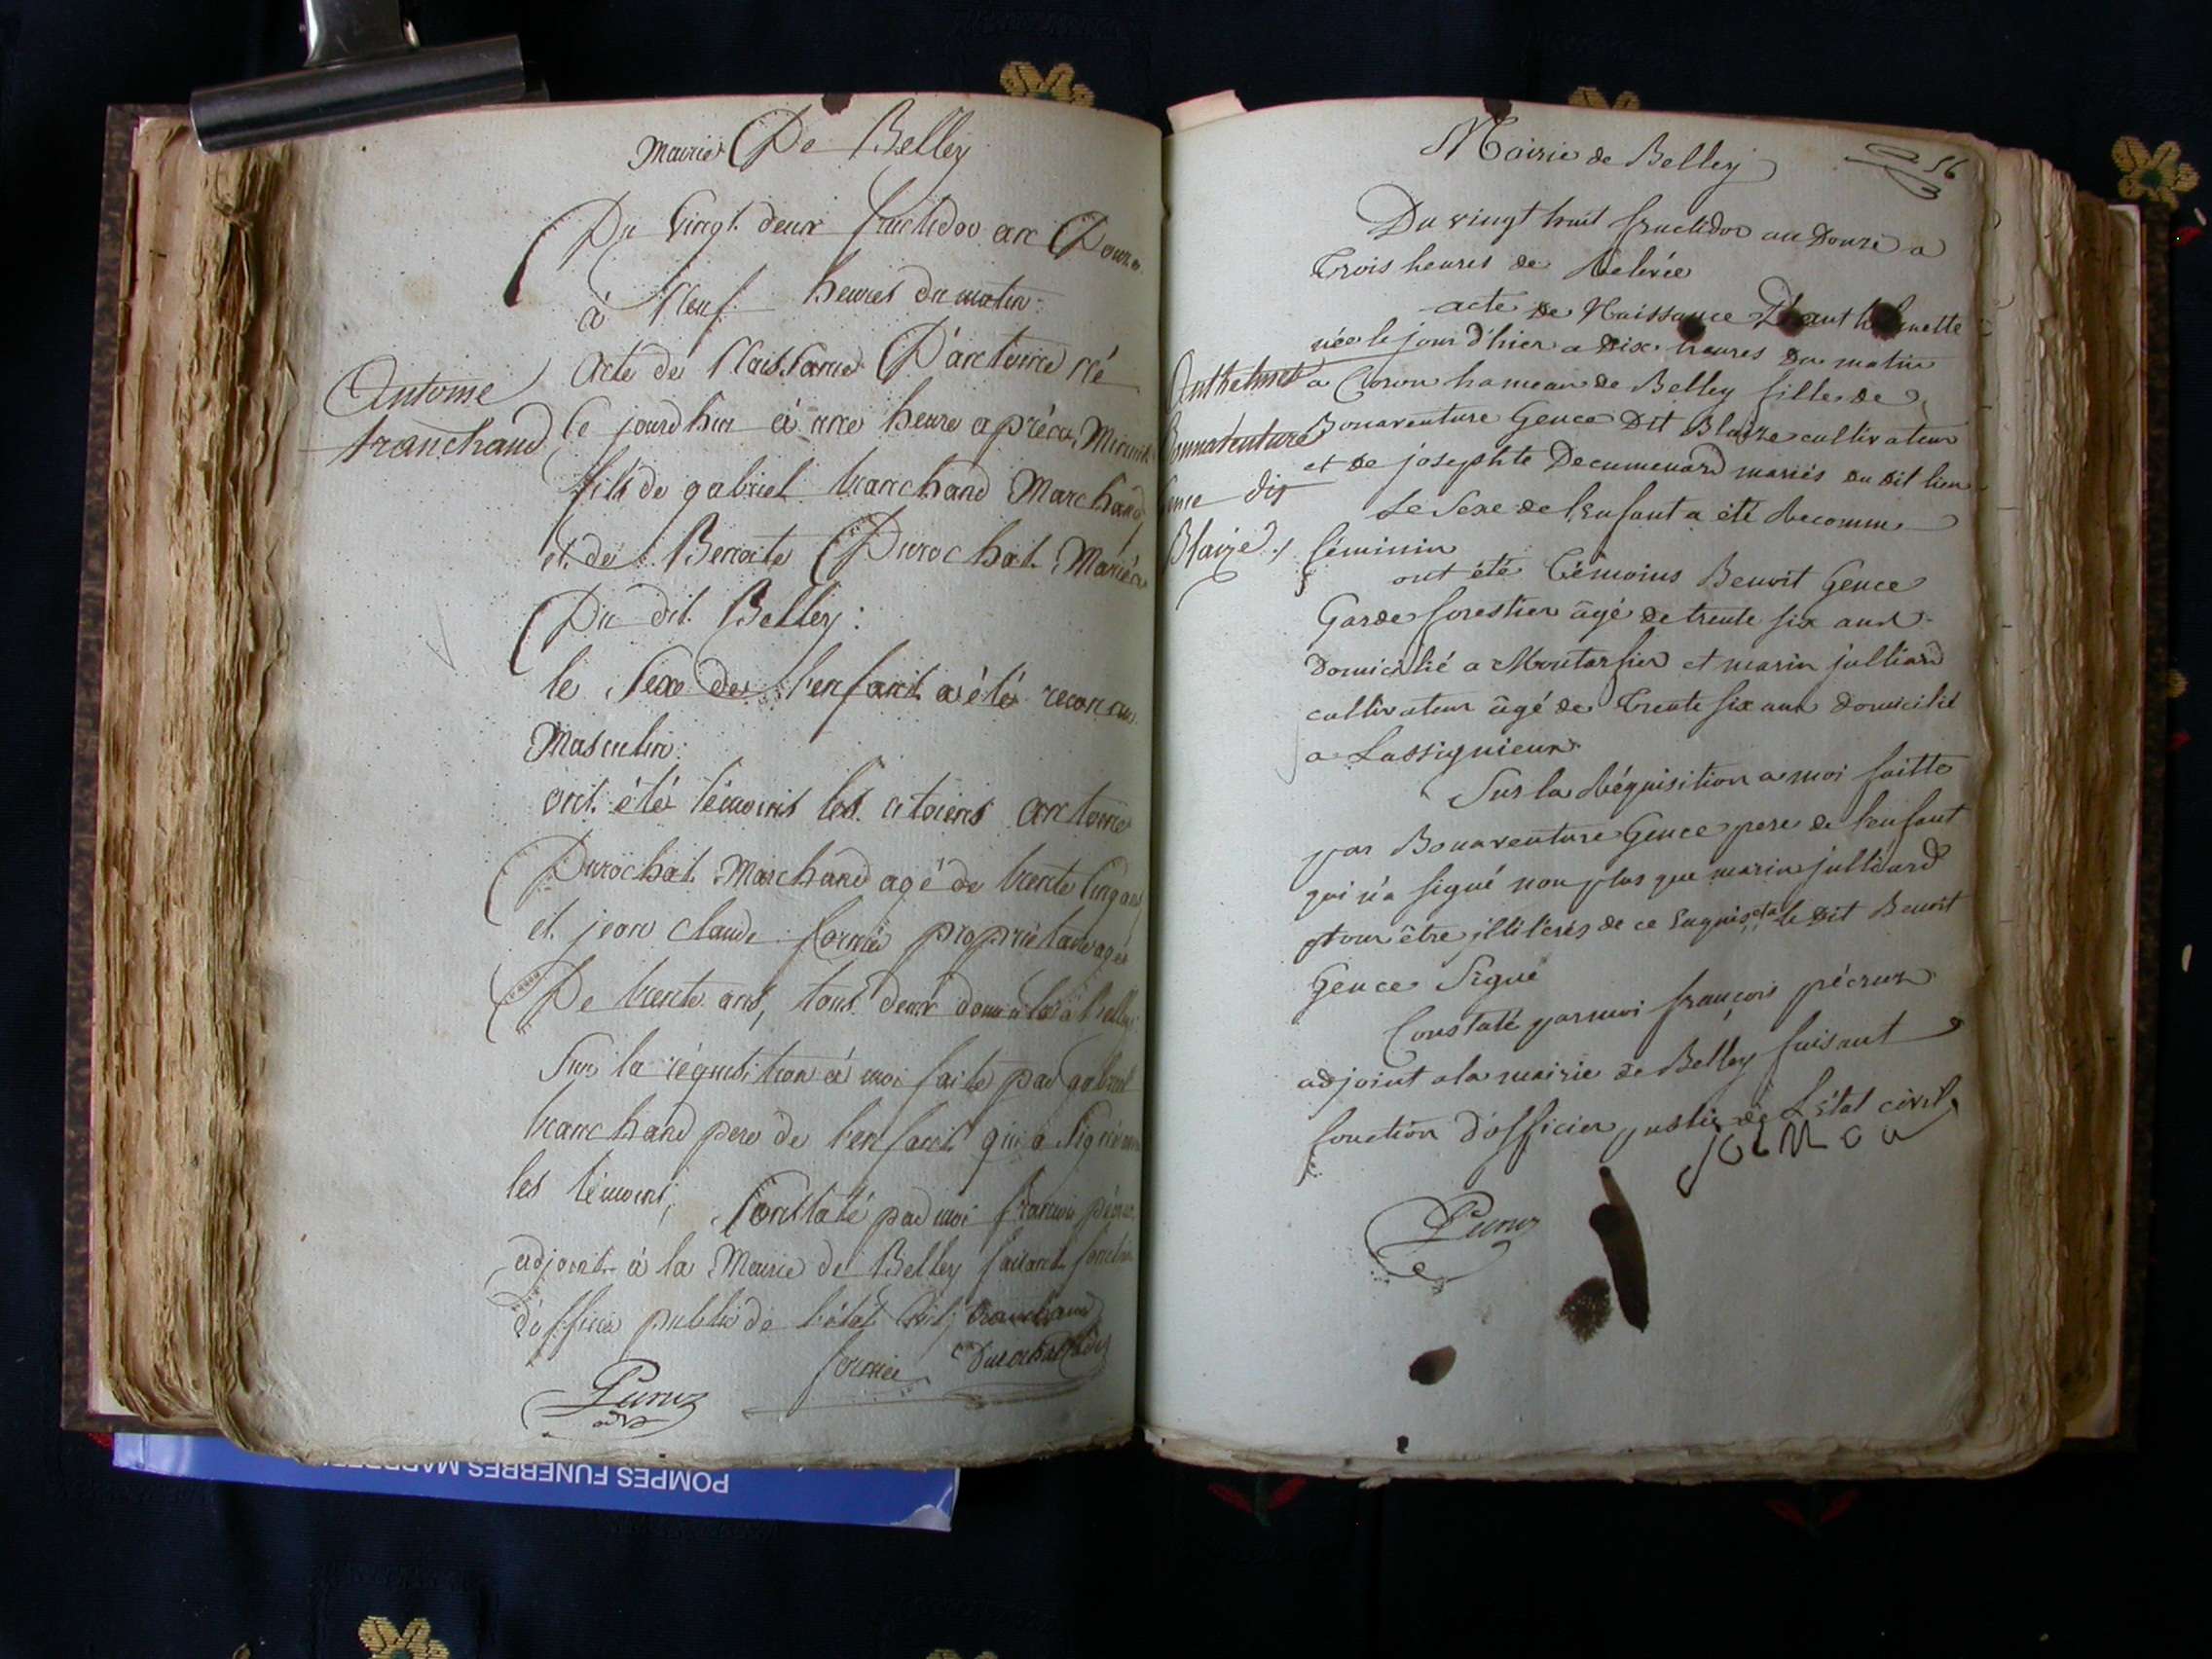 Mairie De Belley
Du Vingt deux fructidor an Douze
à Neuf heures du matin
Acte de Naissance D'antoine né
Antoine
tranchand
le jourd'hui à une heure après Minuit
fils de gabriel tranchand Marchand
et de Benoite Durochat Mariés
Du dit Belley :
le Sexe de l'enfant a été reconnu
Masculin :
ont été témoins les citoiens antoine
Durochat Marchand agé de trente cinq ans
et jean claude propriétaire agé
De trente ans, tous deux domiciliés à belley
Sur la réquisition à moi faite par gabriel
tranchand pere de l'enfant qui a Signé
les témoins, Constaté par moi françois
adjoint à la Mairie de Belley faisant fonction
d'officier public de l'état Civil, tranchand
Durochat
Mairie de Belley
56
Du vingt huit fructidor an Douze a
Trois heures de Relevée
acte de Naissance D'anthelmette
née le jour d'hier a Dix heures Du matin
Anthelmette
Bonnaventure
Gence dit
Blaize
a Coron hameau de Belley fille de
Bonaventure Gence Dit Blaize cultivateur
et de josephte Decumenard mariés Du Dit lieu
Le Sexe de l'enfant a été Reconnu
féminin
ont été Témoins Benoit Gence
Garde forestier âgé de trente six ans
Domicilié a et marin julliard
cultivateur âgé de Trente six ans Domicilié
a Lassignieux
Sur la Réquisition a moi faitte
par Bonaventure Gence pere de l'enfant
qui n'a signé non plus que marin julliard
pour être illiterés de ce enquis et a le Dit Benoit
Gence Signé
Constaté par moi françois
adjoint a la mairie de Belley faisant
fonction D'officier public de L'état civil
POMPES FUNEBRES